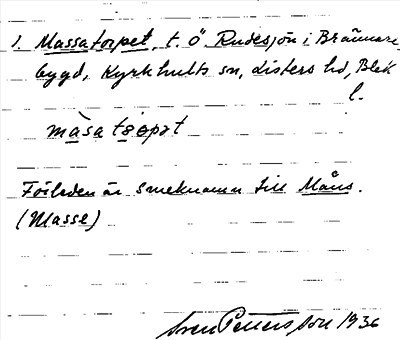 1. Massatorpet, t. Ö. Rudesjön i Brännare
bygd, Kyrkhults sn, Listers hd, Blek
l.
masa torpət
Förleden är smeknamn till Måns.
(Masse)
Sven Pettersson 1936